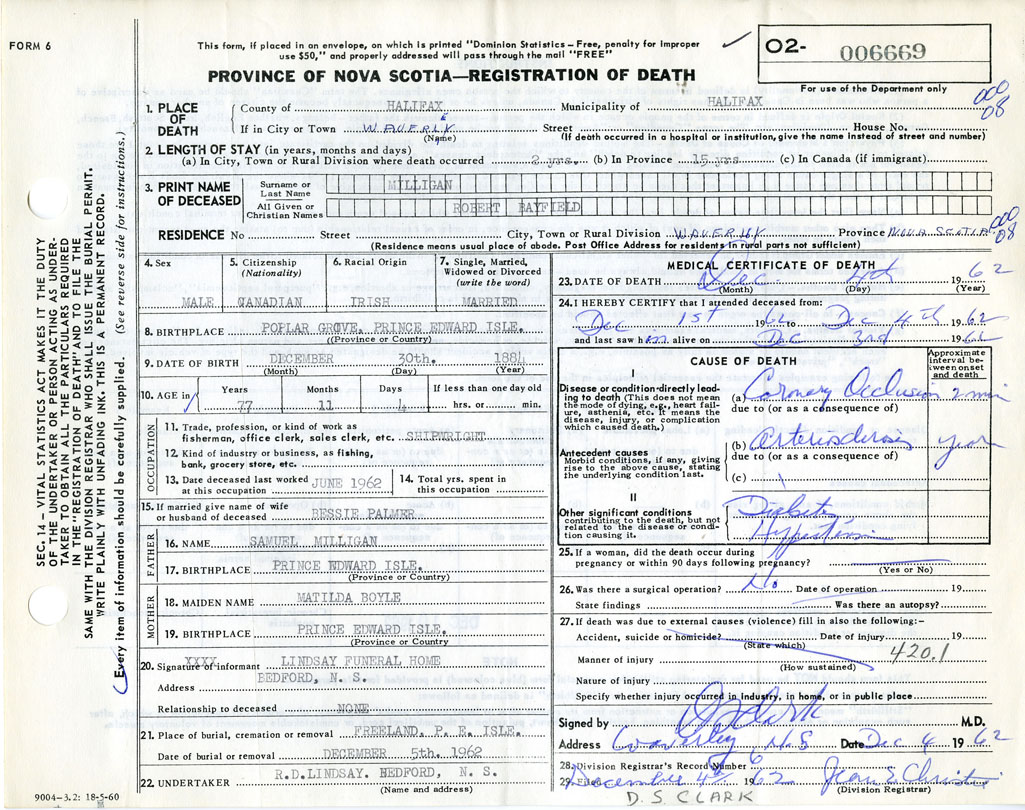 FORM 6
This form, if placed in an envelope, on which is printed "Dominion Statistics – Free, penalty for improper
use $50," and properly addressed will pass through the mail "FREE"
O2- 006669
For use of the Department only
PROVINCE OF NOVA SCOTIA—REGISTRATION OF DEATH
1. PLACE OF DEATH
County of HALIFAX Municipality of HALIFAX 000 08
If in City or Town WAVERLEY Street House No.
(Name) (If death occurred in a hospital or institution, give the name instead of street and number)
2. LENGTH OF STAY (in years, months and days)
(a) In City, Town or Rural Division where death occurred 2 yrs. (b) In Province 15 yrs (c) In Canada (if immigrant)
3. PRINT NAME OF DECEASED
Surname or Last Name MILLIGAN
All Given or Christian Names ROBERT BAYFIELD
RESIDENCE No Street City, Town or Rural Division Province NOVA SCOTIA 000 08
(Residence means usual place of abode. Post Office Address for residents in rural parts not sufficient)
4. Sex MALE
5. Citizenship (Nationality) CANADIAN
6. Racial Origin IRISH
7. Single, Married, Widowed or Divorced (write the word) MARRIED
8. BIRTHPLACE POPLAR GROVE, PRINCE EDWARD ISLE.
(Province or Country)
9. DATE OF BIRTH DECEMBER 30th. 1884
(Month) (Day) (Year)
10. AGE in Years Months Days If less than one day old
77 11 4 hrs. or min.
OCCUPATION
11. Trade, profession, or kind of work as
fisherman, office clerk, sales clerk, etc. SHIPWRIGHT
12. Kind of industry or business, as fishing,
bank, grocery store, etc.
13. Date deceased last worked at this occupation JUNE 1962
14. Total yrs. spent in this occupation
15. If married give name of wife
or husband of deceased BESSIE PALMER
FATHER
16. NAME SAMUEL MILLIGAN
17. BIRTHPLACE PRINCE EDWARD ISLE.
(Province or Country)
MOTHER
18. MAIDEN NAME MATILDA BOYLE
19. BIRTHPLACE PRINCE EDWARD ISLE.
(Province or Country
20. Signature of informant XXXX LINDSAY FUNERAL HOME
Address BEDFORD, N. S.
Relationship to deceased NONE
21. Place of burial, cremation or removal FREELAND, P. E. ISLE.
Date of burial or removal DECEMBER 5th. 1962
22. UNDERTAKER R.D.LINDSAY. BEDFORD, N. S.
(Name and address)
MEDICAL CERTIFICATE OF DEATH
23. DATE OF DEATH Dec 4th 1962
(Month) (Day) (Year)
24. I HEREBY CERTIFY that I attended deceased from:
Dec 1st 1962 to Dec 4th 1962
and last saw him alive on Dec 3rd 1962
CAUSE OF DEATH
Approximate interval between onset and death
I
Disease or condition directly leading to death (This does not mean the mode of dying, e.g., heart failure, asthenia, etc. It means the disease, injury, or complication which caused death.)
(a) Coronary Occlusion 2 min
due to (or as a consequence of)
Antecedent causes
Morbid conditions, if any, giving rise to the above cause, stating the underlying condition last.
(b) Arteriosclerosis years
due to (or as a consequence of)
(c)
II
Other significant conditions
contributing to the death, but not related to the disease or condition causing it.
Diabetes
Hypertension
25. If a woman, did the death occur during
pregnancy or within 90 days following pregnancy?
(Yes or No)
26. Was there a surgical operation? No Date of operation 19
State findings Was there an autopsy?
27. If death was due to external causes (violence) fill in also the following:–
Accident, suicide or homicide? Date of injury 19
(State which)
Manner of injury 420.1
(How sustained)
Nature of injury
Specify whether injury occurred in industry, in home, or in public place
Signed by D S Clark M.D.
Address Waverley N.S Date Dec 4 1962
28. Division Registrar's Record Number 6
29. Filed December 4th 1962 Jean E Christie
(Division Registrar)
D. S. CLARK
SEC. 14—VITAL STATISTICS ACT MAKES IT THE DUTY
OF THE UNDERTAKER OR PERSON ACTING AS UNDER-
TAKER TO OBTAIN ALL THE PARTICULARS REQUIRED
IN THE "REGISTRATION OF DEATH" AND TO FILE THE
SAME WITH THE DIVISION REGISTRAR WHO SHALL ISSUE THE BURIAL PERMIT.
WRITE PLAINLY WITH UNFADING INK. THIS IS A PERMANENT RECORD.
Every item of information should be carefully supplied. (See reverse side for instructions.)
9004-3.2: 18-5-60